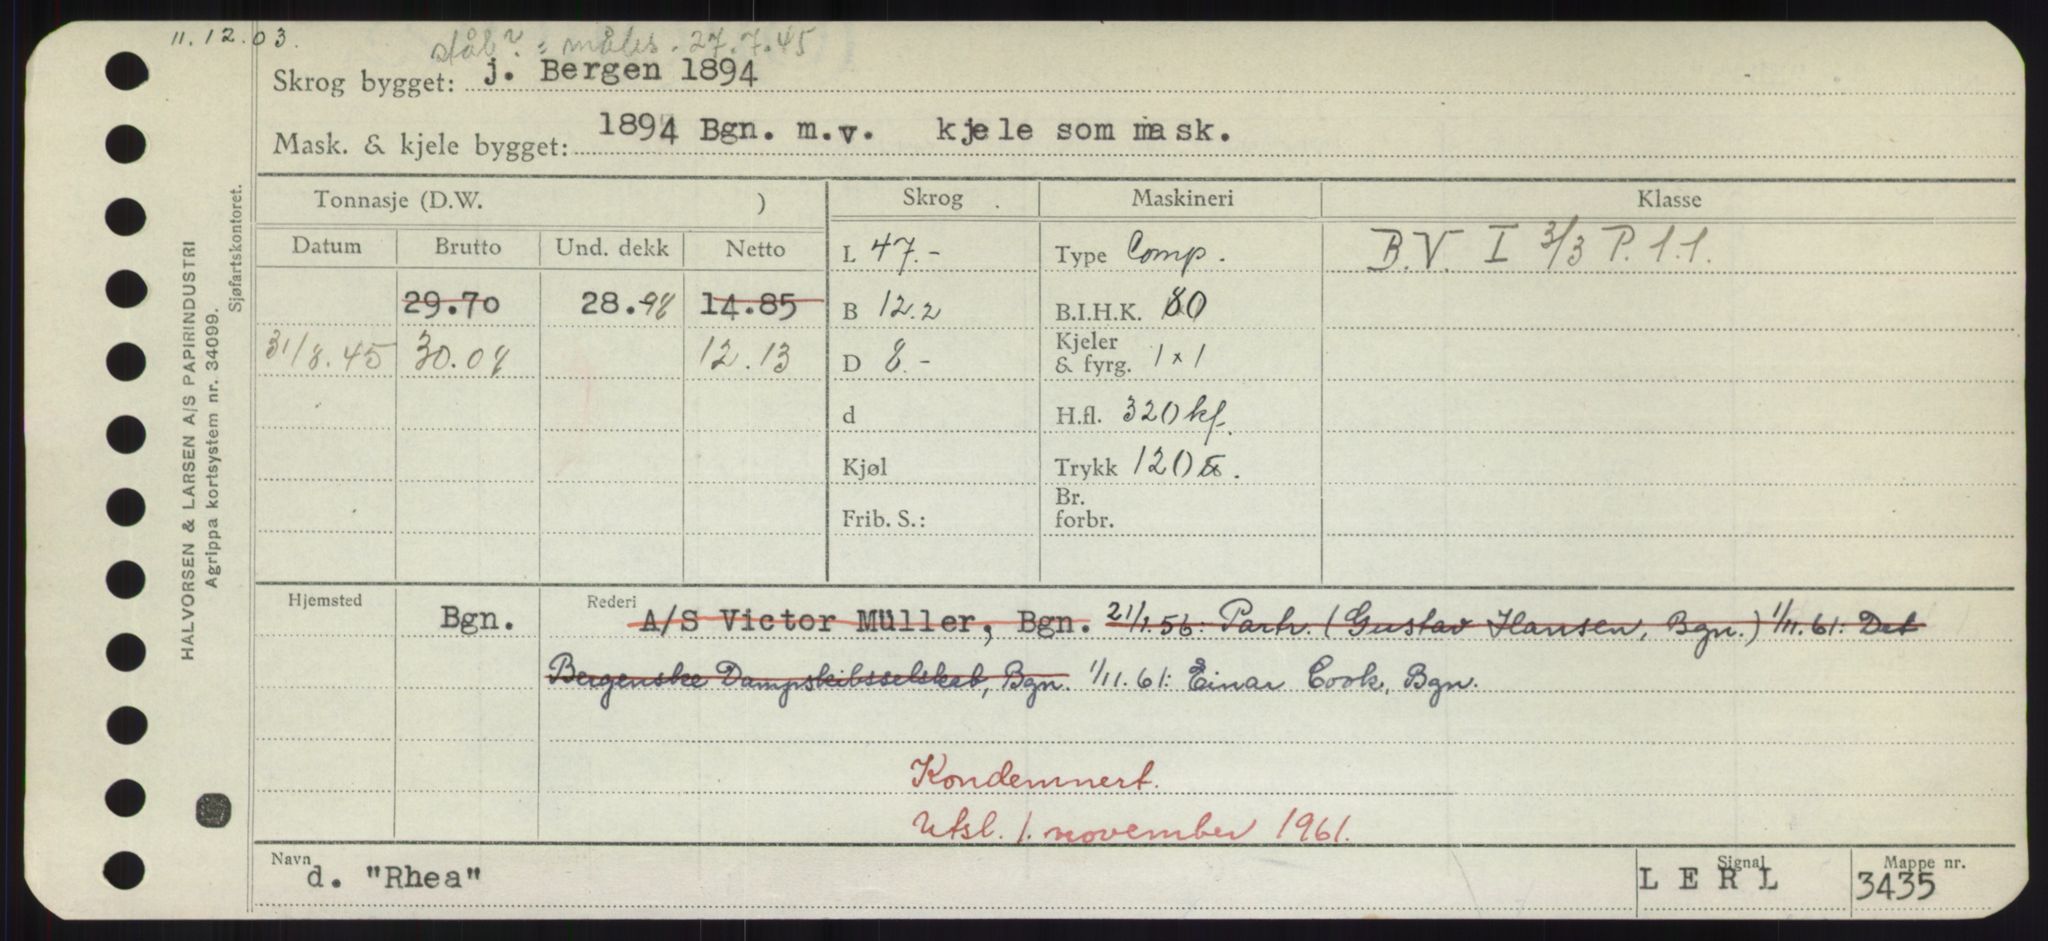 11.12.03.
stål? : måles. 27.7.45
Skrog bygget: j. Bergen 1894
Mask. & kjele bygget: 1894 Bgn. m.v. kjele som mask.
Tonnasje (D.W. )
Skrog
Maskineri
Klasse
Datum Brutto Und. dekk Netto
L 47.-
Type Comp.
B.V. I 3/3 P. 1.1.
29.70 28.98 14.85
B 12.2
B.I.H.K. 80
31/8.45 30.08 12.13
D 8.-
Kjeler
& fyrg. 1 x 1
d
H.fl. 320 kf.
Kjøl
Trykk 120 lbs.
Frib. S.:
Br.
forbr.
Hjemsted Bgn.
Rederi A/S Victor Müller, Bgn. 21/1.56: Partr. (Gustav Hansen, Bgn.) 1/11.61: Det
Bergenske Dampskibsselskab, Bgn. 1/11.61: Einar Cook, Bgn.
Kondemnert.
Utsl. 1. november 1961.
Navn d. "Rhea"
Signal L E R L
Mappe nr. 3435
HALVORSEN & LARSEN A/S PAPIRINDUSTRI
Agrippa kortsystem nr. 34099.
Sjøfartskontoret.